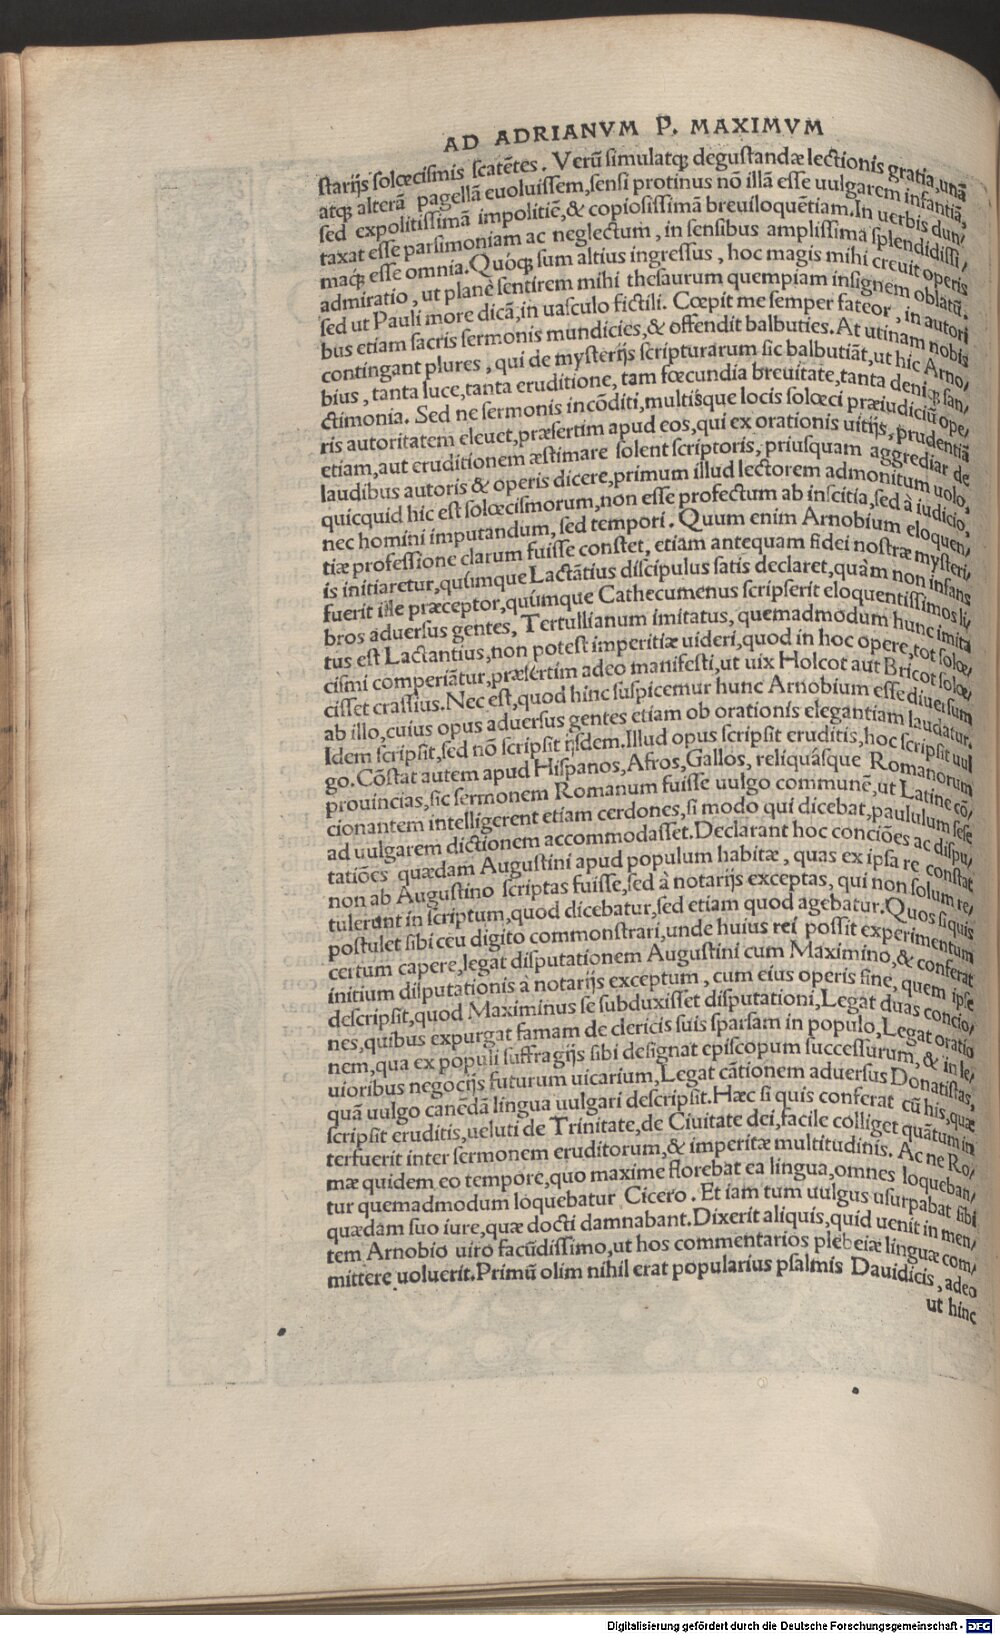 AD ADRIANVM P. MAXIMVM
starijs solœcismis scatētes. Verū simulatq; degustandæ lectionis gratia, unā
atq; alterā pagellā euoluissem, sensi protinus nō illā esse uulgarem infantiā,
sed expolitissimā impolitiē, & copiosissimā breuiloquētiam. In uerbis dun/
taxat esse parsimoniam ac neglectum, in sensibus amplissima splendidissi/
maq; esse omnia. Quoq; sum altius ingressus, hoc magis mihi creuit operis
admiratio, ut planè sentirem mihi thesaurum quempiam insignem oblatū.
sed ut Pauli more dicā, in uasculo fictili. Cœpit me semper fateor, in autori
bus etiam sacris sermonis mundicies, & offendit balbuties. At utinam nobis
contingant plures, qui de mysterijs scripturarum sic balbutiāt, ut hic Arno/
bius, tanta luce, tanta eruditione, tam fœcundia breuitate, tanta deniq; san/
ctimonia. Sed ne sermonis incōditi, multisque locis solœci præiudiciū ope/
ris autoritatem eleuet, præsertim apud eos, qui ex orationis uitijs, prudentiā
etiam, aut eruditionem æstimare solent scriptoris, priusquam aggrediar de
laudibus autoris & operis dicere, primum illud lectorem admonitum uolo,
quicquid hic est solœcismorum, non esse profectum ab inscitia, sed à iudicio,
nec homini imputandum, sed tempori. Quum enim Arnobium eloquen/
tiæ professione clarum fuisse constet, etiam antequam fidei nostræ mysteri/
is initiaretur, quùmque Lactātius discipulus satis declaret, quàm non infans
fuerit ille præceptor, quùmque Cathecumenus scripserit eloquentissimos li/
bros aduersus gentes, Tertullianum imitatus, quemadmodum hunc imita
tus est Lactantius, non potest imperitiæ uideri, quod in hoc opere, tot solœ/
cismi comperiātur, præsertim adeo manifesti, ut uix Holcot aut Bricot solœ/
cisset crassius. Nec est, quod hinc suspicemur hunc Arnobium esse diuersum
ab illo, cuius opus aduersus gentes etiam ob orationis elegantiam laudatur.
Idem scripsit, sed nō scripsit ijsdem. Illud opus scripsit eruditis, hoc scripsit uul
go. Cōstat autem apud Hispanos, Afros, Gallos, reliquâsque Romanorum
prouincias, sic sermonem Romanum fuisse uulgo communē, ut Latine cō/
cionantem intelligerent etiam cerdones, si modo qui dicebat, paululum sese
ad uulgarem dictionem accommodasset. Declarant hoc conciōes ac dispu/
tatiōes quædam Augustini apud populum habitæ, quas ex ipsa re constat
non ab Augustino scriptas fuisse, sed à notarijs exceptas, qui non solum re/
tulerunt in scriptum, quod dicebatur, sed etiam quod agebatur. Quos si quis
postulet sibi ceu digito commonstrari, unde huius rei possit experimentum
certum capere, legat disputationem Augustini cum Maximino, & conferat
initium disputationis a notarijs exceptum, cum eius operis fine, quem ipse
descripsit, quod Maximinus se subduxisset disputationi, Legat duas concio/
nes, quibus expurgat famam de clericis suis sparsam in populo, Legat oratio
nem, qua ex populi suffragijs sibi designat episcopum successurum, & in le/
uioribus negocijs futurum uicarium, Legat cātionem aduersus Donatistas,
quā uulgo canēdā lingua uulgari descripsit. Hæc si quis conferat cū his, quæ
scripsit eruditis, ueluti de Trinitate, de Ciuitate dei, facile colliget quātum in
terfuerit inter sermonem eruditorum, & imperitæ multitudinis. Ac ne Ro/
mæ quidem eo tempore, quo maxime florebat ea lingua, omnes loqueban/
tur quemadmodum loquebatur Cicero. Et iam tum uulgus usurpabat sibi
quædam suo iure, quæ docti damnabant. Dixerit aliquis, quid uenit in men/
tem Arnobio uiro facūdissimo, ut hos commentarios plebeiæ linguæ com/
mittere uoluerit. Primū olim nihil erat popularius psalmis Dauidicis, adeo
ut hinc
Digitalisierung gefördert durch die Deutsche Forschungsgemeinschaft - DFG